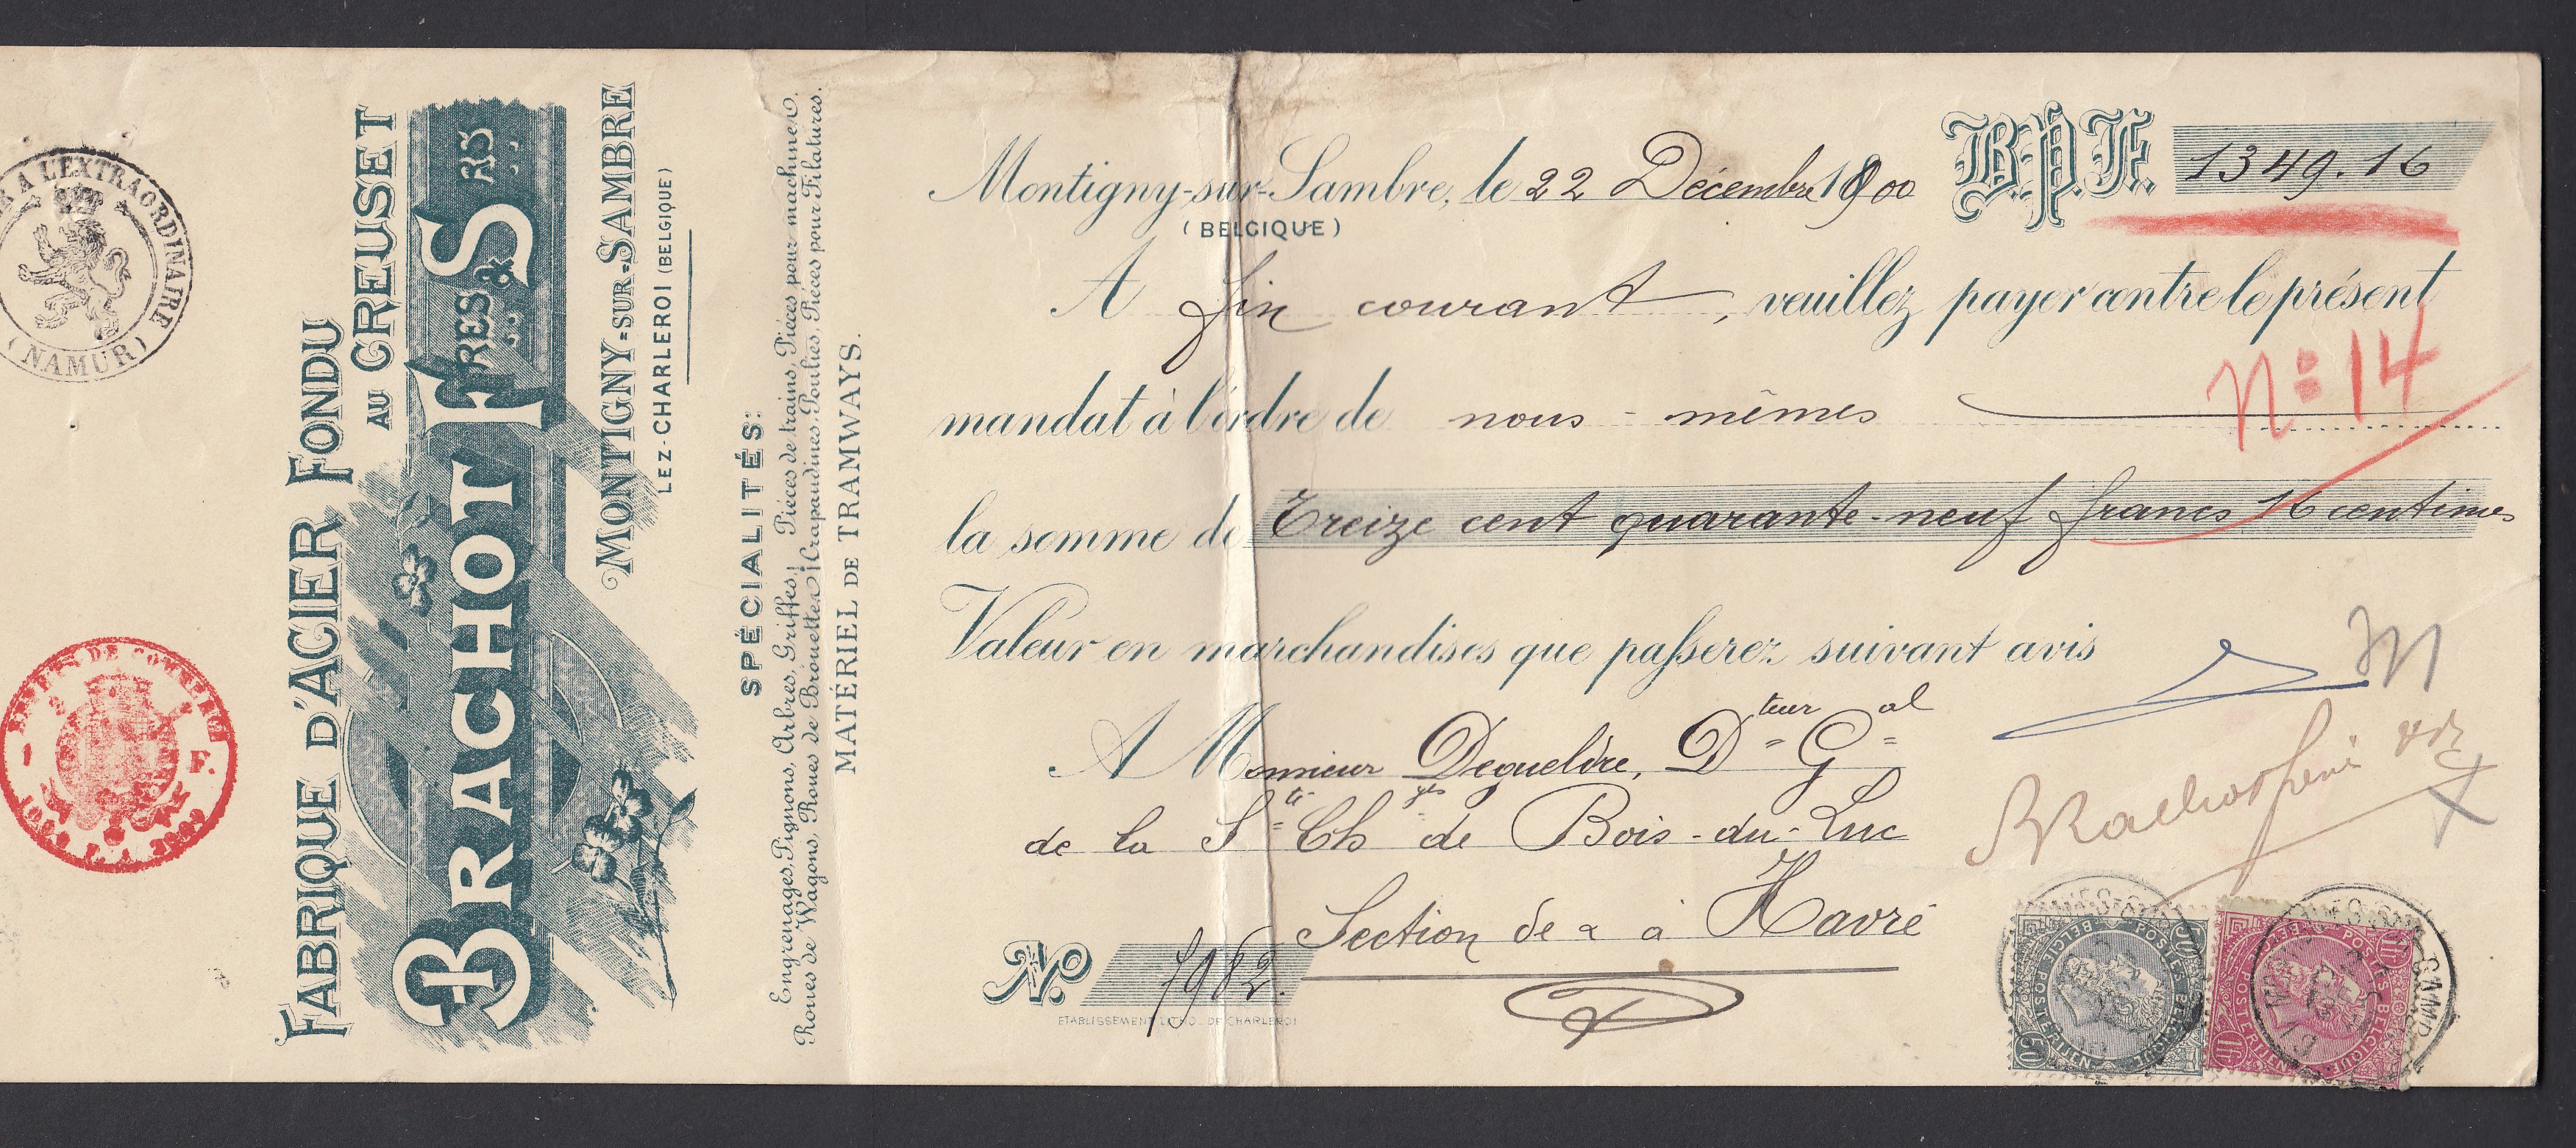 R A L'EXTRAORDINAIRE
(NAMUR)
EFFETS DE COMMERCE
1 F.
FABRIQUE D'ACIER FONDU
AU CREUSET
BRACHOT FRES & SRS
MONTIGNY-SUR-SAMBRE
LEZ-CHARLEROI (BELGIQUE)
SPÉCIALITÉS:
Engrenages, Pignons, Arbres, Griffes, Pièces de trains, Pièces pour machines.
Roues de Wagons, Roues de Brouettes, Crapaudines, Poulies, Pièces pour Filatures.
MATÉRIEL DE TRAMWAYS.
Montigny-sur-Sambre, le 22 Décembre 1900 B.P.F. 1349.16
(BELGIQUE)
A fin courant, veuillez payer contre le présent
N° 14
mandat à l'ordre de nous-mêmes
la somme de Treize cent quarante-neuf francs 16 centimes
Valeur en marchandises que passerez suivant avis
A Monsieur Dequeldre, Dteur Gal
de la Sté Chges de Bois-du-Luc
Section de & à Havré
No. 7982.
ETABLISSEMENT LITHO. DE CHARLEROI
BELGIQUE POSTES BELGIQUE POSTERIJEN
50
BELGIQUE POSTERIJEN
1 fr